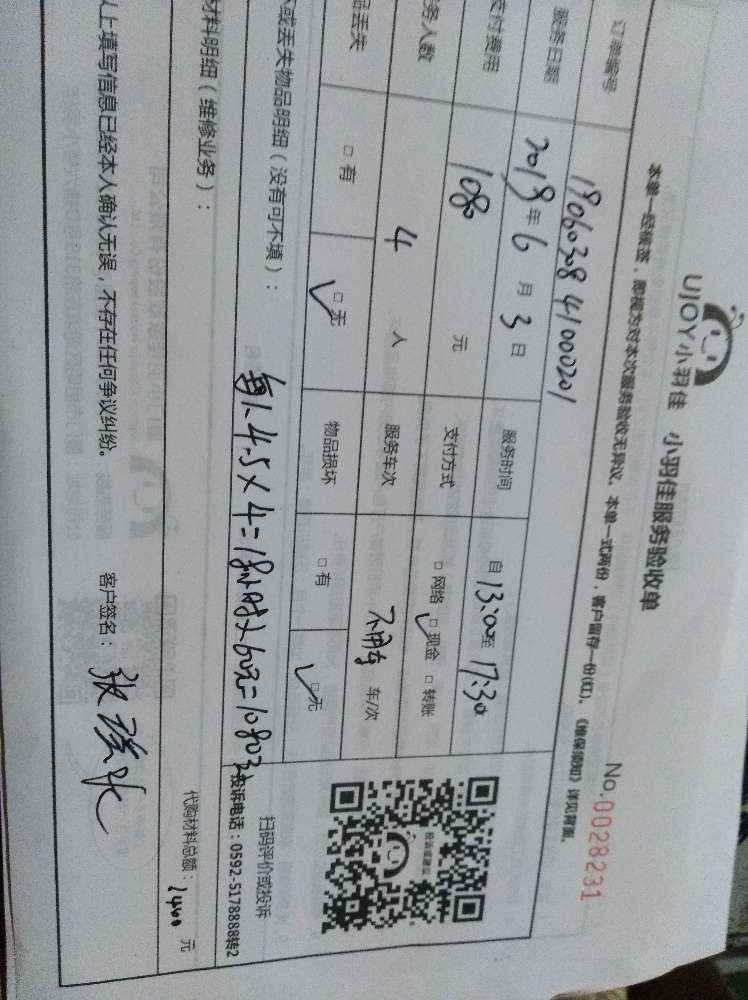 UJOY小羽佳 小羽佳服务验收单
No.0028231
本单一经签署，即视为对本次服务验收无异议。本单一式两份，客户留存一份(红)。《维保须知》详见背面。
订单编号 19060308 41000201
服务日期 2019年6月3日 服务时间 自13:00至17:30
支付费用 1080元 支付方式 □网络 □现金 □转账
务人数 4人 服务车次 不用车 车/次
品丢失 □有 □无 物品损坏 □有 □无
或丢失物品明细（没有可不填）：
每人4.5×4=18小时×60元=1080元
扫码评价或投诉
投诉电话：0592-5178888转2
投诉或建议
材料明细（维修业务）： 代购材料总额： 元
以上填写信息已经本人确认无误，不存在任何争议纠纷。 客户签名：